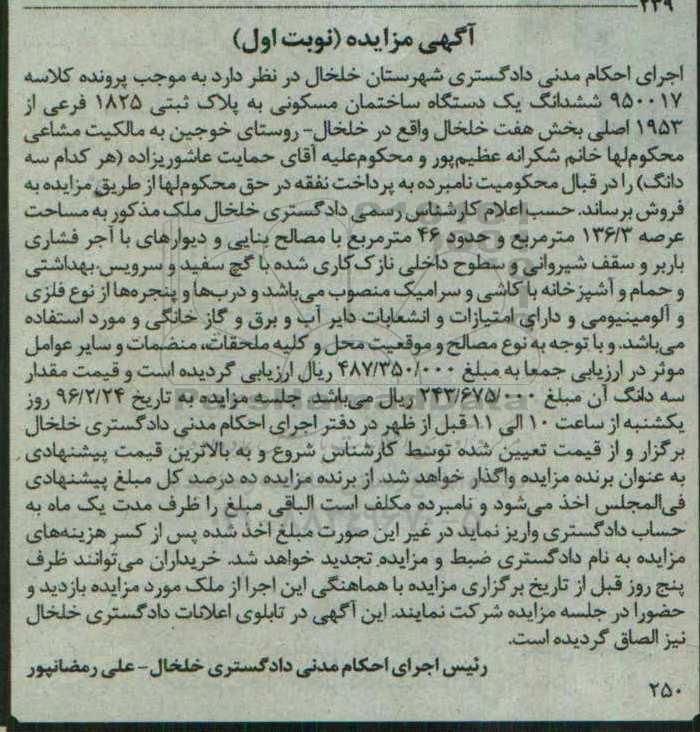 ۲۳۹
آگهی مزایده (نوبت اول)
اجرای احکام مدنی دادگستری شهرستان خلخال در نظر دارد به موجب پرونده کلاسه
۹۵۰۰۱۷ ششدانگ یک دستگاه ساختمان مسکونی به پلاک ثبتی ۱۸۲۵ فرعی از
۱۹۵۳ اصلی بخش هفت خلخال واقع در خلخال- روستای خوجین به مالکیت مشاعی
محکوم‌لها خانم شکرانه عظیم‌پور و محکوم‌علیه آقای حمایت عاشوریزاده (هر کدام سه
دانگ) را در قبال محکومیت نامبرده به پرداخت نفقه در حق محکوم‌لها از طریق مزایده به
فروش برساند. حسب اعلام کارشناس رسمی دادگستری خلخال ملک مذکور به مساحت
عرصه ۱۳۶/۳ مترمربع و حدود ۴۶ مترمربع با مصالح بنایی و دیوارهای با آجر فشاری
باربر و سقف شیروانی و سطوح داخلی نازک‌کاری شده با گچ سفید و سرویس‌بهداشتی
و حمام و آشپزخانه با کاشی و سرامیک منصوب می‌باشد و درب‌ها و پنجره‌ها از نوع فلزی
و آلومینیومی و دارای امتیازات و انشعابات دایر آب و برق و گاز خانگی و مورد استفاده
می‌باشد. و با توجه به نوع مصالح و موقعیت محل و کلیه ملحقات، منضمات و سایر عوامل
موثر در ارزیابی جمعا به مبلغ ۴۸۷/۳۵۰/۰۰۰ ریال ارزیابی گردیده است و قیمت مقدار
سه دانگ آن مبلغ ۲۴۳/۶۷۵/۰۰۰ ریال می‌باشد. جلسه مزایده به تاریخ ۹۶/۲/۲۴ روز
یکشنبه از ساعت ۱۰ الی ۱۱ قبل از ظهر در دفتر اجرای احکام مدنی دادگستری خلخال
برگزار و از قیمت تعیین شده توسط کارشناس شروع و به بالاترین قیمت پیشنهادی
به عنوان برنده مزایده واگذار خواهد شد. از برنده مزایده ده درصد کل مبلغ پیشنهادی
فی‌المجلس اخذ می‌شود و نامبرده مکلف است الباقی مبلغ را ظرف مدت یک ماه به
حساب دادگستری واریز نماید در غیر این صورت مبلغ اخذ شده پس از کسر هزینه‌های
مزایده به نام دادگستری ضبط و مزایده تجدید خواهد شد. خریداران می‌توانند ظرف
پنج روز قبل از تاریخ برگزاری مزایده با هماهنگی این اجرا از ملک مورد مزایده بازدید و
حضورا در جلسه مزایده شرکت نمایند. این آگهی در تابلوی اعلانات دادگستری خلخال
نیز الصاق گردیده است.
رئیس اجرای احکام مدنی دادگستری خلخال - علی رمضانپور
۲۵۰